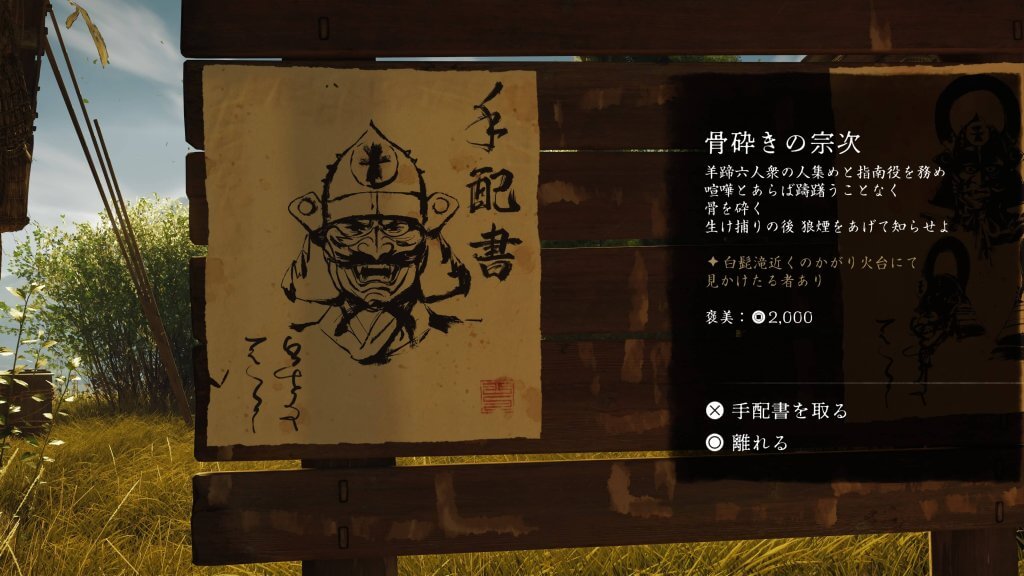 手配書
骨砕きの宗次
羊蹄六人衆の人集めと指南役を務め
喧嘩とあらば躊躇うことなく
骨を砕く
生け捕りの後 狼煙をあげて知らせよ
白髭滝近くのかがり火台にて
見かけたる者あり
褒美：2,000
手配書を取る
離れる